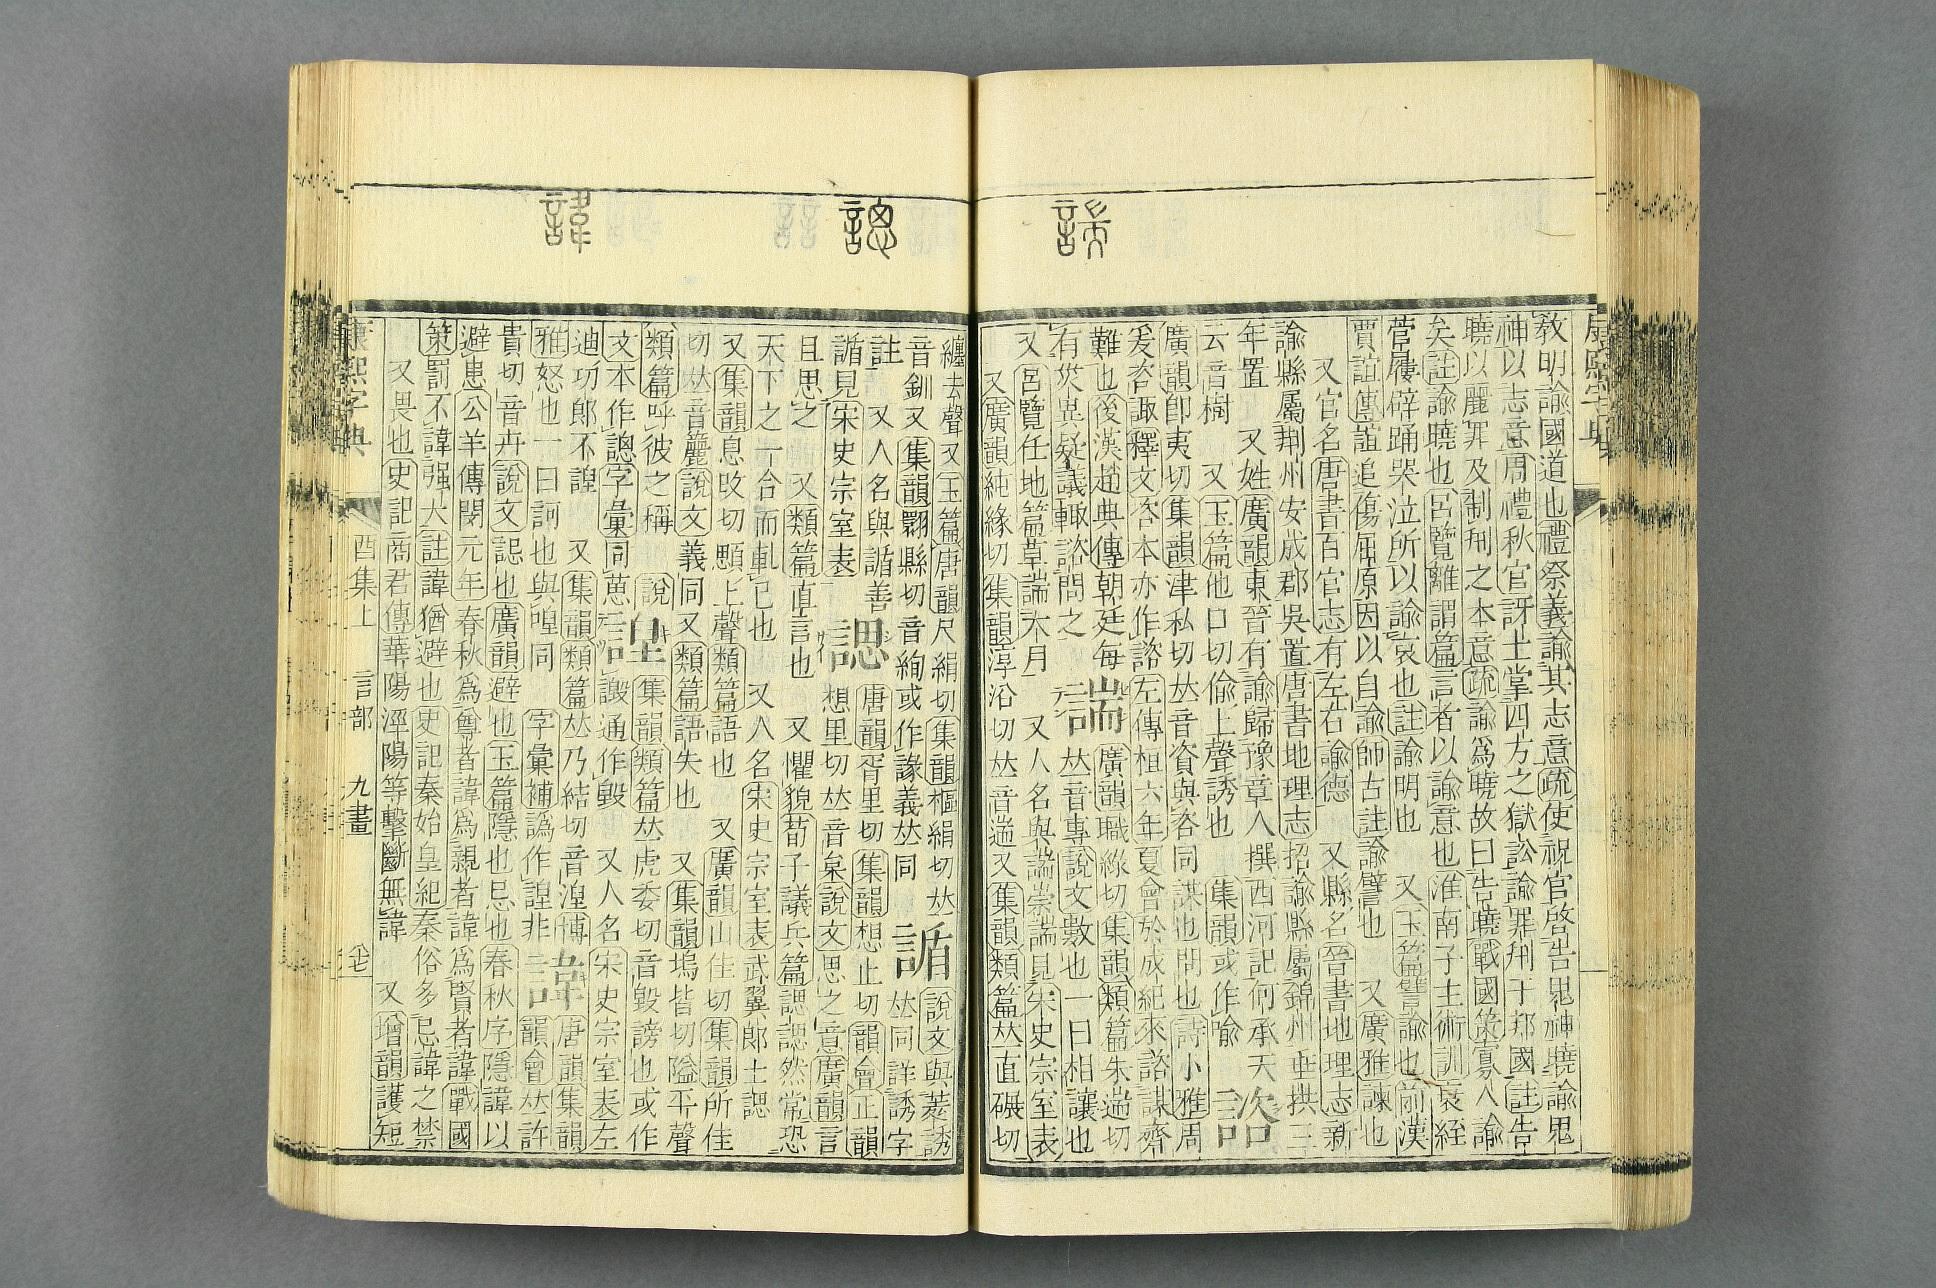 康熙字典
教明諭國道也禮祭義諭其志意疏使祝官啓告鬼神曉諭鬼
神以志意周禮秋官訝士掌四方之獄訟諭罪刑于邦國註告
曉以麗罪及制刑之本意疏諭爲曉故曰告曉戰國策寡人諭
矣註諭曉也呂覽離謂篇言者以諭意也淮南子主術訓衰絰
菅屨辟踊哭泣所以諭哀也註諭明也 又玉篇譬諭也前漢
賈誼傳誼追傷屈原因以自諭師古註諭譬也 又廣雅諫也
又官名唐書百官志有左右諭德 又縣名晉書地理志新
諭縣屬荆州安成郡吳置唐書地理志招諭縣屬錦州垂拱三
年置 又姓廣韻東晉有諭歸豫章人撰西河記何承天
云音樹 又玉篇他口切偷上聲誘也 集韻或作喻 諮
廣韻卽夷切集韻津私切𠀤音資與咨同謀也問也詩小雅周
爰咨諏釋文咨本亦作諮左傳桓六年夏會於成紀來諮謀齊
難也後漢趙典傳朝廷每 諯 廣韻職緣切集韻類篇朱遄切
有災異疑議輒諮問之 𠀤音專說文數也一曰相讓也
又呂覽任地篇草諯大月 又人名與諯崇諯見宋史宗室表
又廣韻純緣切集韻淳沿切𠀤音遄又集韻類篇𠀤直碾切
纏去聲又玉篇唐韻尺絹切集韻樞絹切𠀤
音釧又集韻翾縣切音絢或作諑義𠀤同 䛡 說文與羑誘
註 又人名與䛡善 諰 唐韻胥里切集韻想止切韻會正韻
䛡見宋史宗室表 想里切𠀤音枲說文思之意廣韻言
且思之 又類篇直言也 又懼貌荀子議兵篇諰諰然常恐
天下之一合而軋己也 又人名宋史宗室表武翼郎士諰
又集韻息改切顋上聲類篇語也 又廣韻山佳切集韻所佳
切𠀤音簁說文義同又類篇語失也 又集韻塢皆切隘平聲
類篇呼彼之稱 說
文本作諰字彙同葸 諻 集韻類篇𠀤虎委切音毀謗也或作
譭通作毀 又人名宋史宗室表左
迪功郎不諻 又集韻類篇𠀤乃結切音湼博
雅怒也一曰訶也與喤同 字彙補譌作諻非 諱 唐韻集韻
韻會𠀤許
貴切音卉說文誋也廣韻避也玉篇隱也忌也春秋序隱諱以
避患公羊傳閔元年春秋爲尊者諱爲親者諱爲賢者諱戰國
策罰不諱强大註諱猶避也史記秦始皇紀秦俗多忌諱之禁
又畏也史記商君傳華陽涇陽等擊斷無諱 又增韻護短
康熙字典 酉集上 言部 九畫